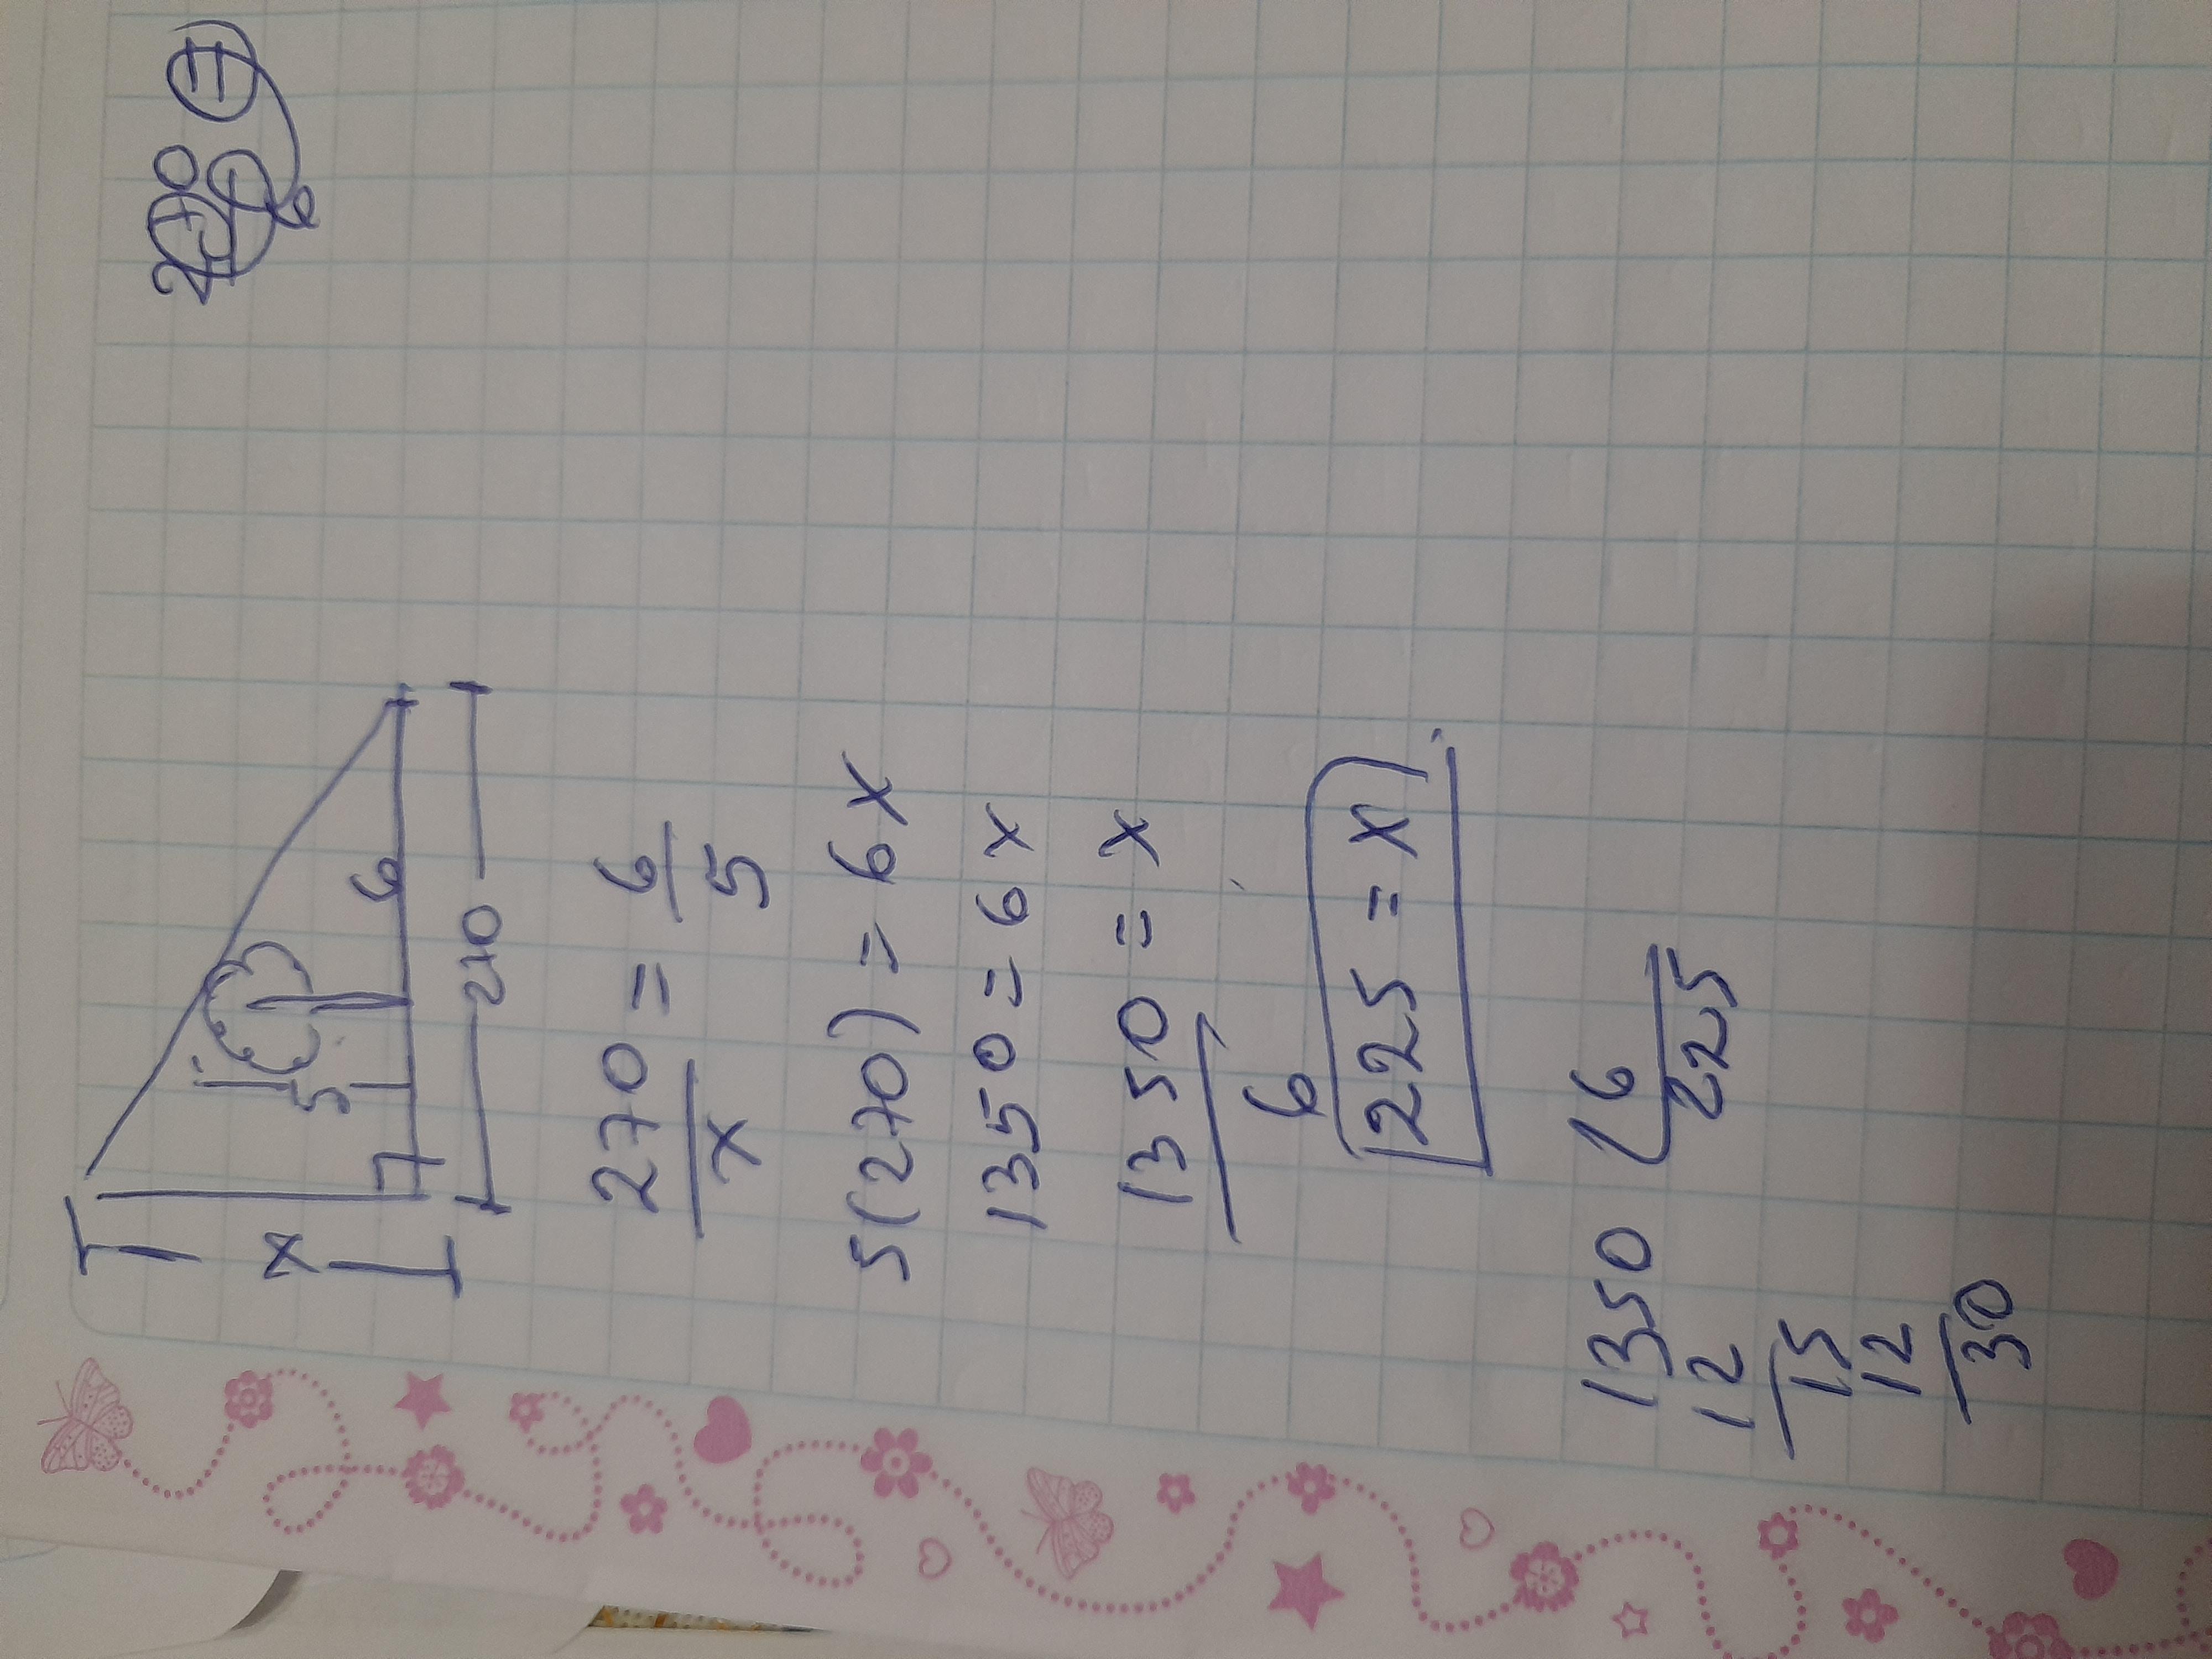 x
5
6
270
270 = 6
x 5
5(270) = 6x
1350 = 6x
1350 = x
6
225 = x
1350 6
12 225
15
12
30